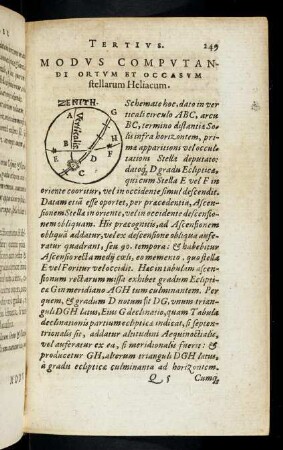 TERTIVS. 249
MODVS COMPVTAN-
DI ORTVM ET OCCASVM
stellarum Heliacum.
ZENITH.
A
G
Verticalis
H
B
F
E
D
C
Schemate hoc, dato in ver
ticali circulo ABC, arcu
BC, termino distantiæ So-
lis infra horizontem, pri-
ma apparitioni vel occul-
tationi Stellæ deputato:
datoq́; D gradu Eclipticæ,
qui cum Stella E vel F in
oriente cooritur, vel in occidente simul descendit.
Datam etiã esse oportet, per præcedentia, Ascensi-
onem Stellæ in oriente, vel in occidente descensio-
nem obliquam. His præcognitis, ad Ascensionem
obliquã addatur, vel ex descensione obliqua aufe-
ratur quadrans, seu 90. tempora: & habebitur
Ascensio recta medij cœli, eo memento, quo stella
E vel F oritur vel occidit. Hæc in tabulam ascen-
sionum rectarum missa exhibet gradum Eclipti-
cæ G in meridiano AGH tum culminantem. Per
quem, & gradum D notum fit DG, vnum trian-
guli DGH latus, Eius G declinatio, quam Tabula
declinationis partium eclipticæ indicat, si septen-
trionalis sit, addatur altitudini Æquinoctialis,
vel auferatur ex ea, si meridionalis fuerit: &
producetur GH, alterum trianguli DGH latus,
à gradu eclipticæ culminante ad horizontem.
Q 5 Cumq́;